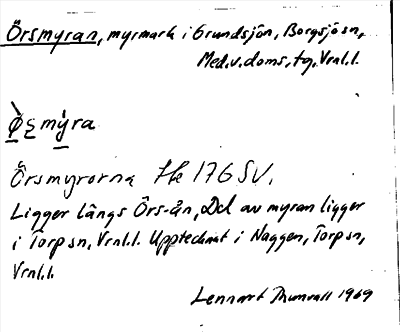 Örsmyran, myrmark i Grundsjön, Borgsjö sn,
Med.v.doms.tg, Vrnl.l.
Örsmyrorna Hk 176 SV.
Ligger längs Örs-ån, Del av myran ligger
i Torp sn, Vrnl.l. Upptecknat i Naggen, Torp sn,
Vrnl.l.
Lennart 1969